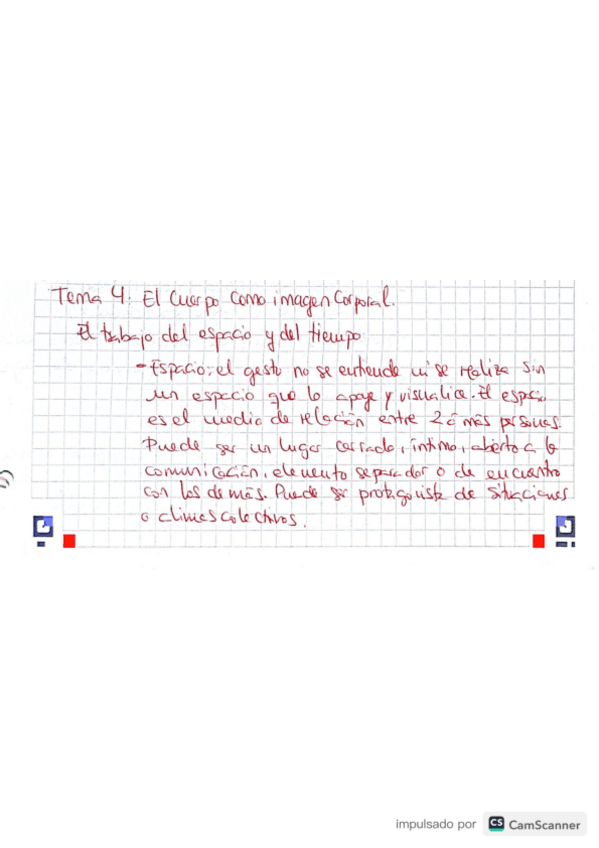 Tema 4: El Cuerpo como imagen Corporal.
El trabajo del espacio y del tiempo
- Espacio: el gesto no se entiende ni se realiza sin
un espacio que lo apoye y visualice. El espacio
es el medio de relación entre 2 ó más personas.
Puede ser un lugar cerrado, íntimo, abierto a la
comunicación, elemento separador o de encuentro
con los demás. Puede ser protagonista de situaciones
o climas colectivos.
impulsado por CS CamScanner